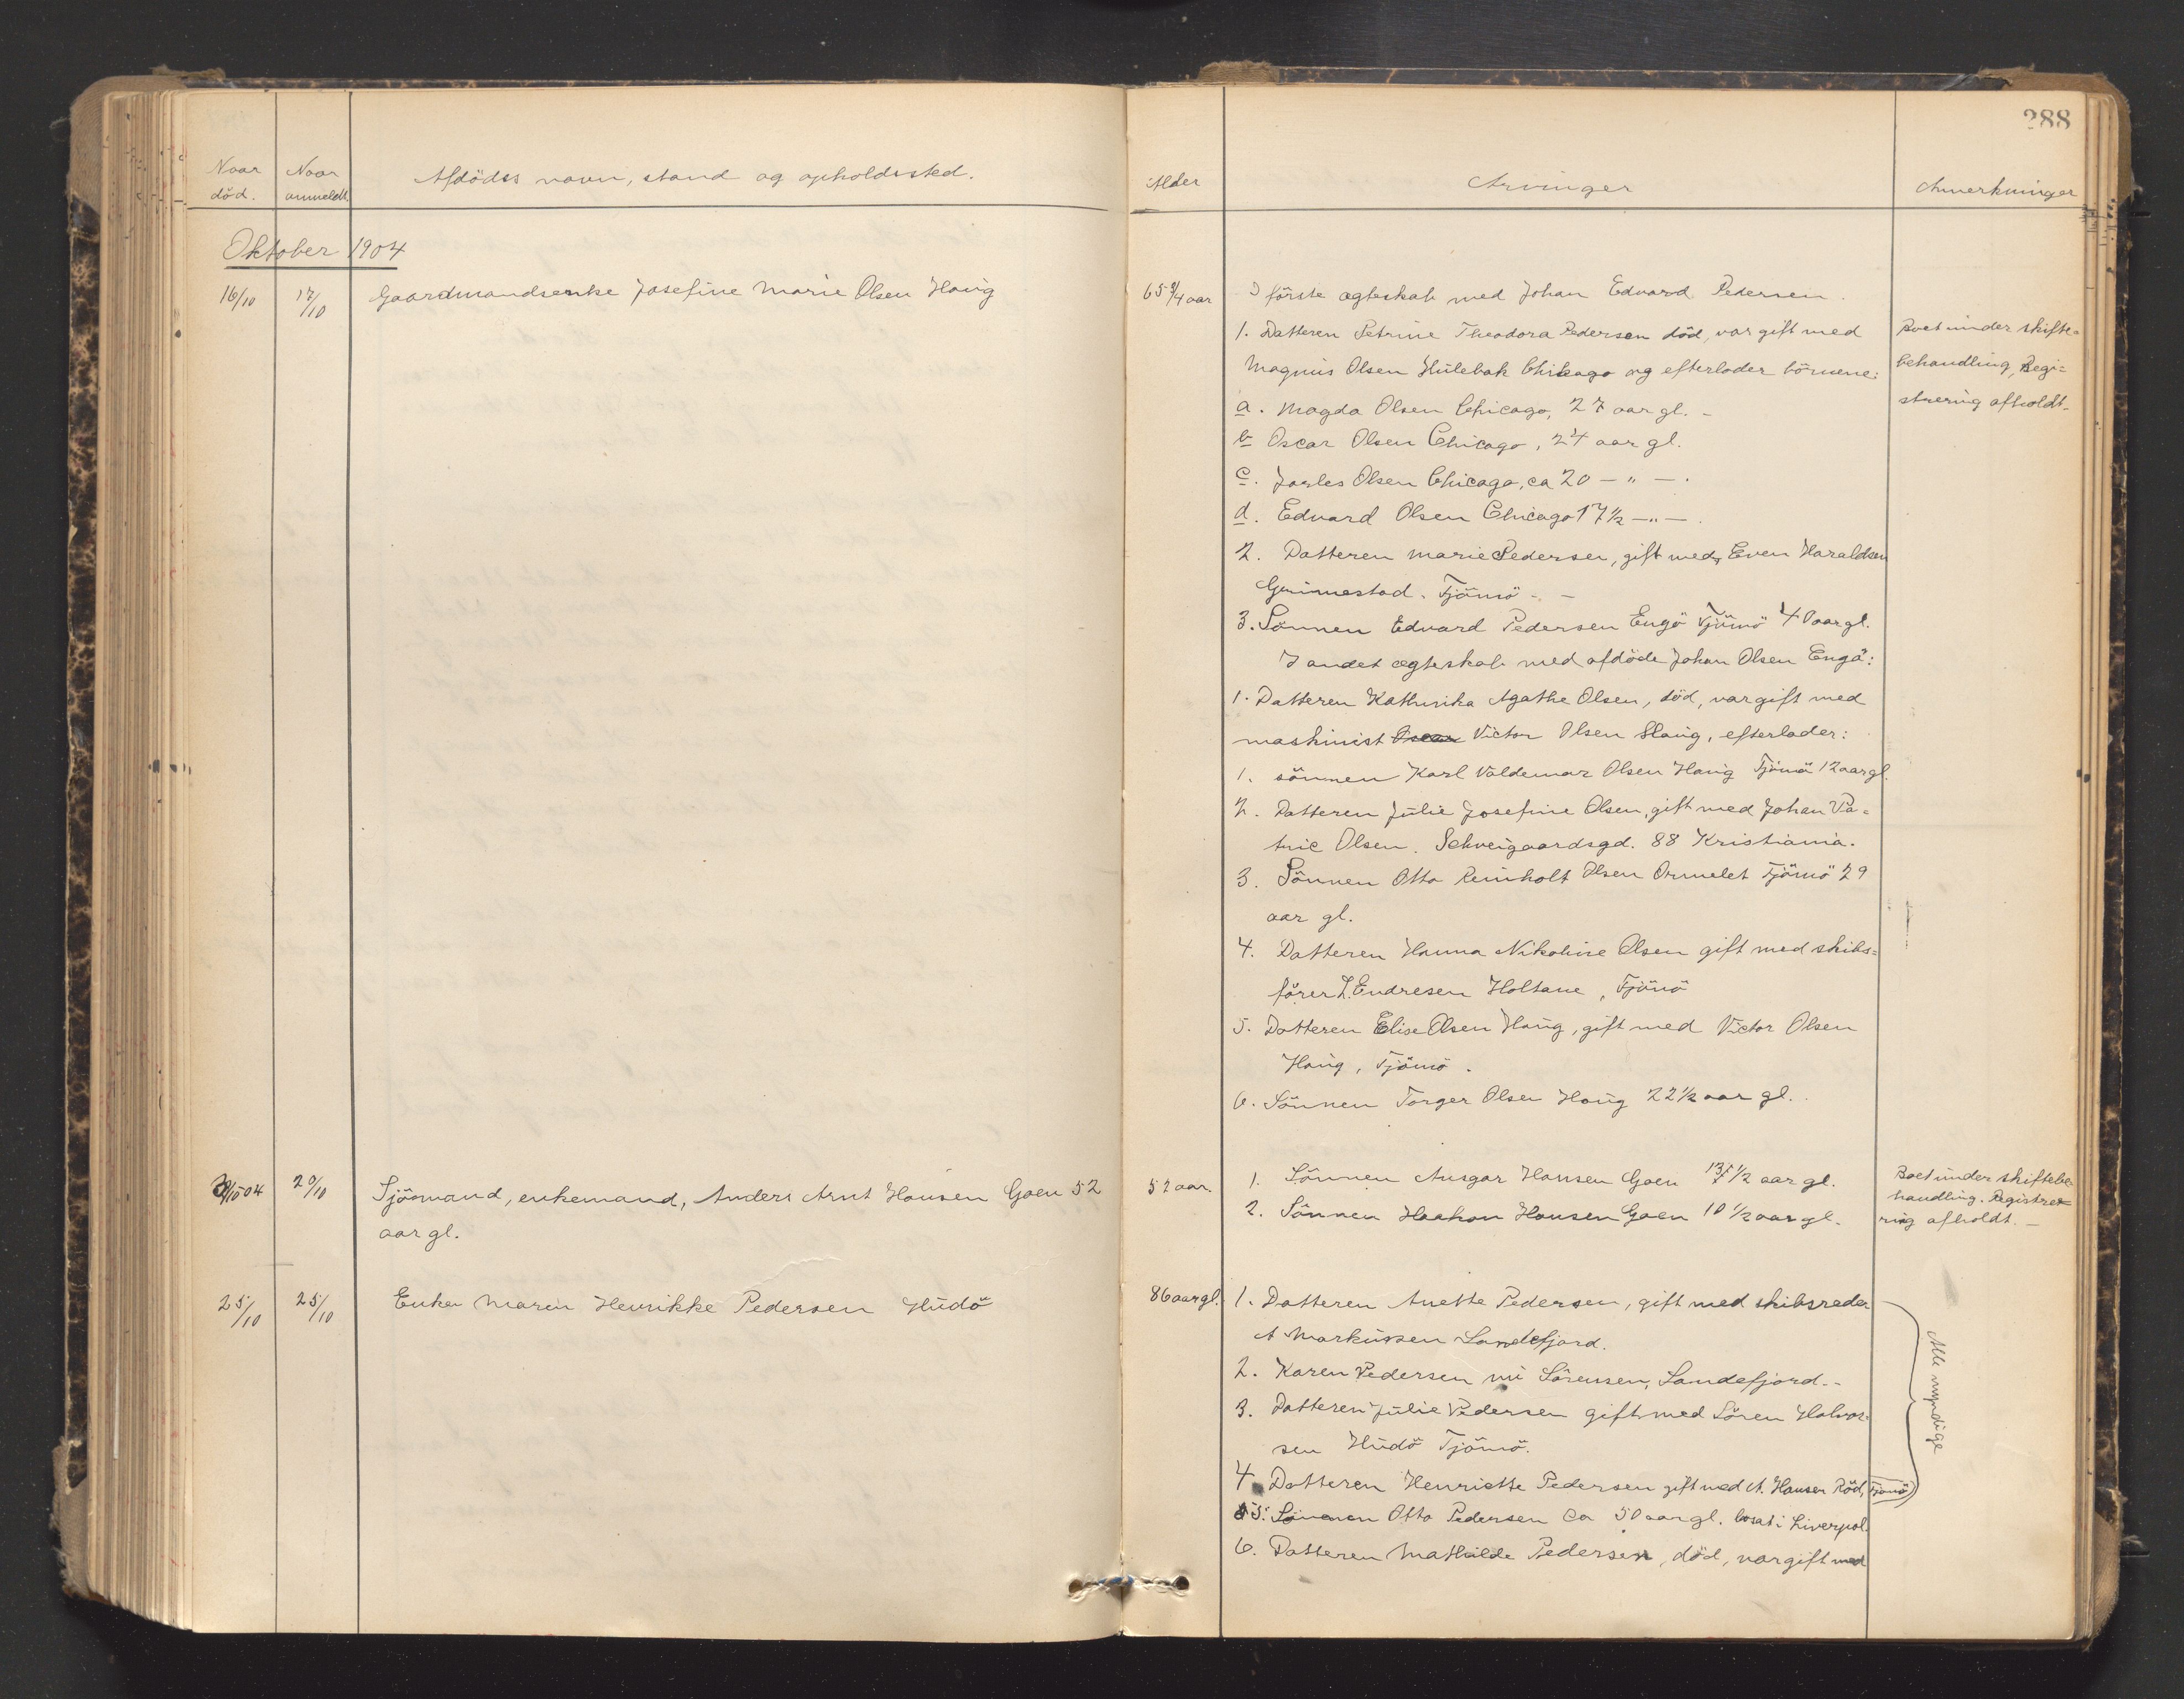 288
Naar død. Naar anmeldt. Afdödes navn, stand og opholdssted. Alder Arvinger Anmerkninger
Oktober 1904
16/10 17/10 Gaardmandsenke Josefine Marie Olsen Haug 65 3/4 aar I förste ægteskab med Johan Edvard Pedersen.
1. Datteren Petrine Theodora Pedersen död, var gift med
Magnus Olsen Hulebak Chikago og efterlader börnene:
a. Magda Olsen Chicago, 27 aar gl. -
b Oscar Olsen Chicago, 24 aar gl.
c. Jarles Olsen Chicago, ca 20 — " — .
d. Edvard Olsen Chicago 17 1/2 — " — .
2. Datteren Marie Pedersen, gift med Even Haraldsen
Grimestad. Tjömö - -
3. Sönnen Edvard Pedersen Engö Tjömö 40 aar gl.
I andet ægteskab med afdöde Johan Olsen Engö:
1. Datteren Kathinka Agathe Olsen, död, var gift med
maskinist Oscar Victor Olsen Haug, efterlader:
1. sönnen Karl Valdemar Olsen Haug Tjömö 12 aar gl.
2. Datteren Julie Josefine Olsen, gift med Johan Pa=
tric Olsen. Schweigaardsgd. 88 Kristiania.
3. Sönnen Otto Reinholt Olsen Ormelet Tjömö 29
aar gl.
4. Datteren Hanna Nikoline Olsen gift med skibs=
förer L. Endresen Holtane, Tjömö
5. Datteren Elise Olsen Haug, gift med Victor Olsen
Haug, Tjömö.
6. Sönnen Torger Olsen Haug 22 1/2 aar gl.
Boet under skifte=
behandling, Regi=
strering afholdt.
/10 04 20/10 Sjömand, enkemand, Anders Arnt Hansen Goen 52
aar gl.
52 aar. 1. Sönnen Ansgar Hansen Goen 1/2 aar gl.
2. Sönnen Haakon Hansen Goen 10 1/2 aar gl.
Boet under skiftebe
handling. Registre
ring afholdt. —
25/10 25/10 Enke Maren Henrikke Pedersen Hudö 86 aar gl. 1. Datteren Anette Pedersen, gift med skibsreder
A Markussen Sandefjord.
2. Karen Pedersen nu Sörensen, Sandefjord. -
3. Datteren Julie Pedersen gift med Sören Halvor
sen Hudö Tjömö.
4 Datteren Henriette Pedersen gift med A. Hansen Röd, Tjömö
5. Sönnen Otto Pedersen ca 50 aar gl. bosat i Liverpol.
6. Datteren Mathilde Pedersen, död, var gift med
Alle myndige